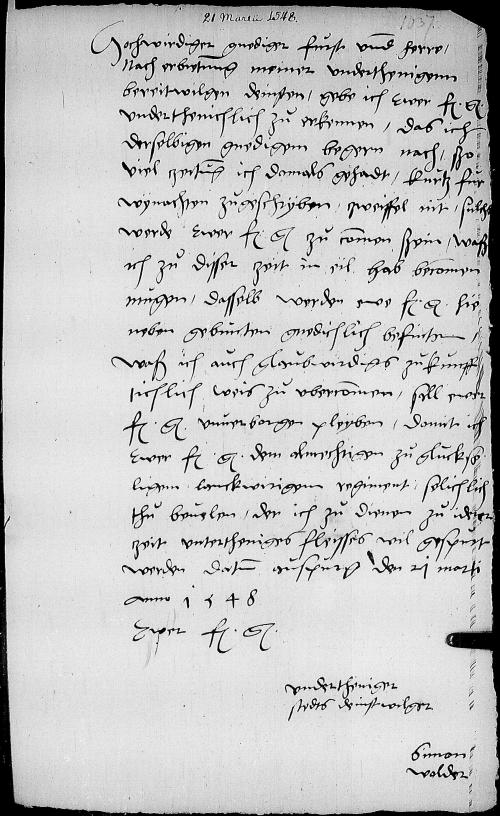 21 Martii 1548.
1037.
Hochwirdiger gnediger furst und herre,
Nach erbietung meiner underthenigenn
bereitwilgen deinsten, gebe ich Ewer f. g.
underthenichlich zu erkennen, das ich
derselbigen gnedigem begern nach, sso
viel zeitung ich damals gehadt, kurtz fur
wynachten zugeschryben, zweiffel nit, sulchs
werde Ewer f. g. zu comen sein, Waß
ich zu disser zeit in eil hab becomen
mugen, dasselb werden ewe f. g. hie
neben gebunten gnedichlich befinten,
Waß ich auch glaubwirdigs zukunff
tichlich weis zu vbercomen, sall ewer
f. g. unverborgen pleyben, damit ich
Ewer f. g. dem almechtigen zu gluckse
ligem lanckwirigem regiment, selichlich
thu bevelen, der ich zu dienen zu ider
zeit untertheniges fleisses wil gespurt
werden Datum auspurg den 21 marti
Anno 1548
Ewer f. g.
undertheniger
stedts deinstwilger
Simon
Wolder